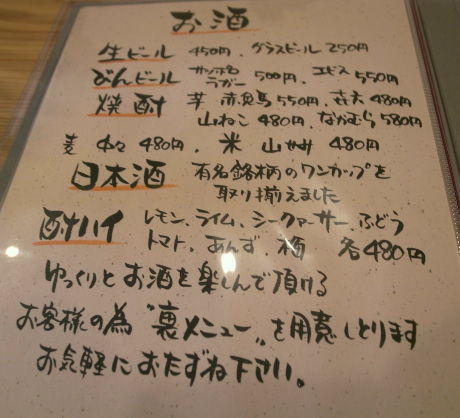 お酒
生ビール 450円、グラスビール 250円
びんビール サッポロラガー 500円、エビス 550円
焼酎 芋 赤兎馬 550円、㐂六 480円
山ねこ 480円、なかむら 580円
麦 中々 480円、米 山せみ 480円
日本酒 有名銘柄のワンカップを
取り揃えました
酎ハイ レモン、ライム、シークァーサー、ぶどう
トマト、あんず、梅 各480円
ゆっくりとお酒を楽しんで頂ける
お客様の為“裏メニュー”を用意しとります
お気軽におたずね下さい。